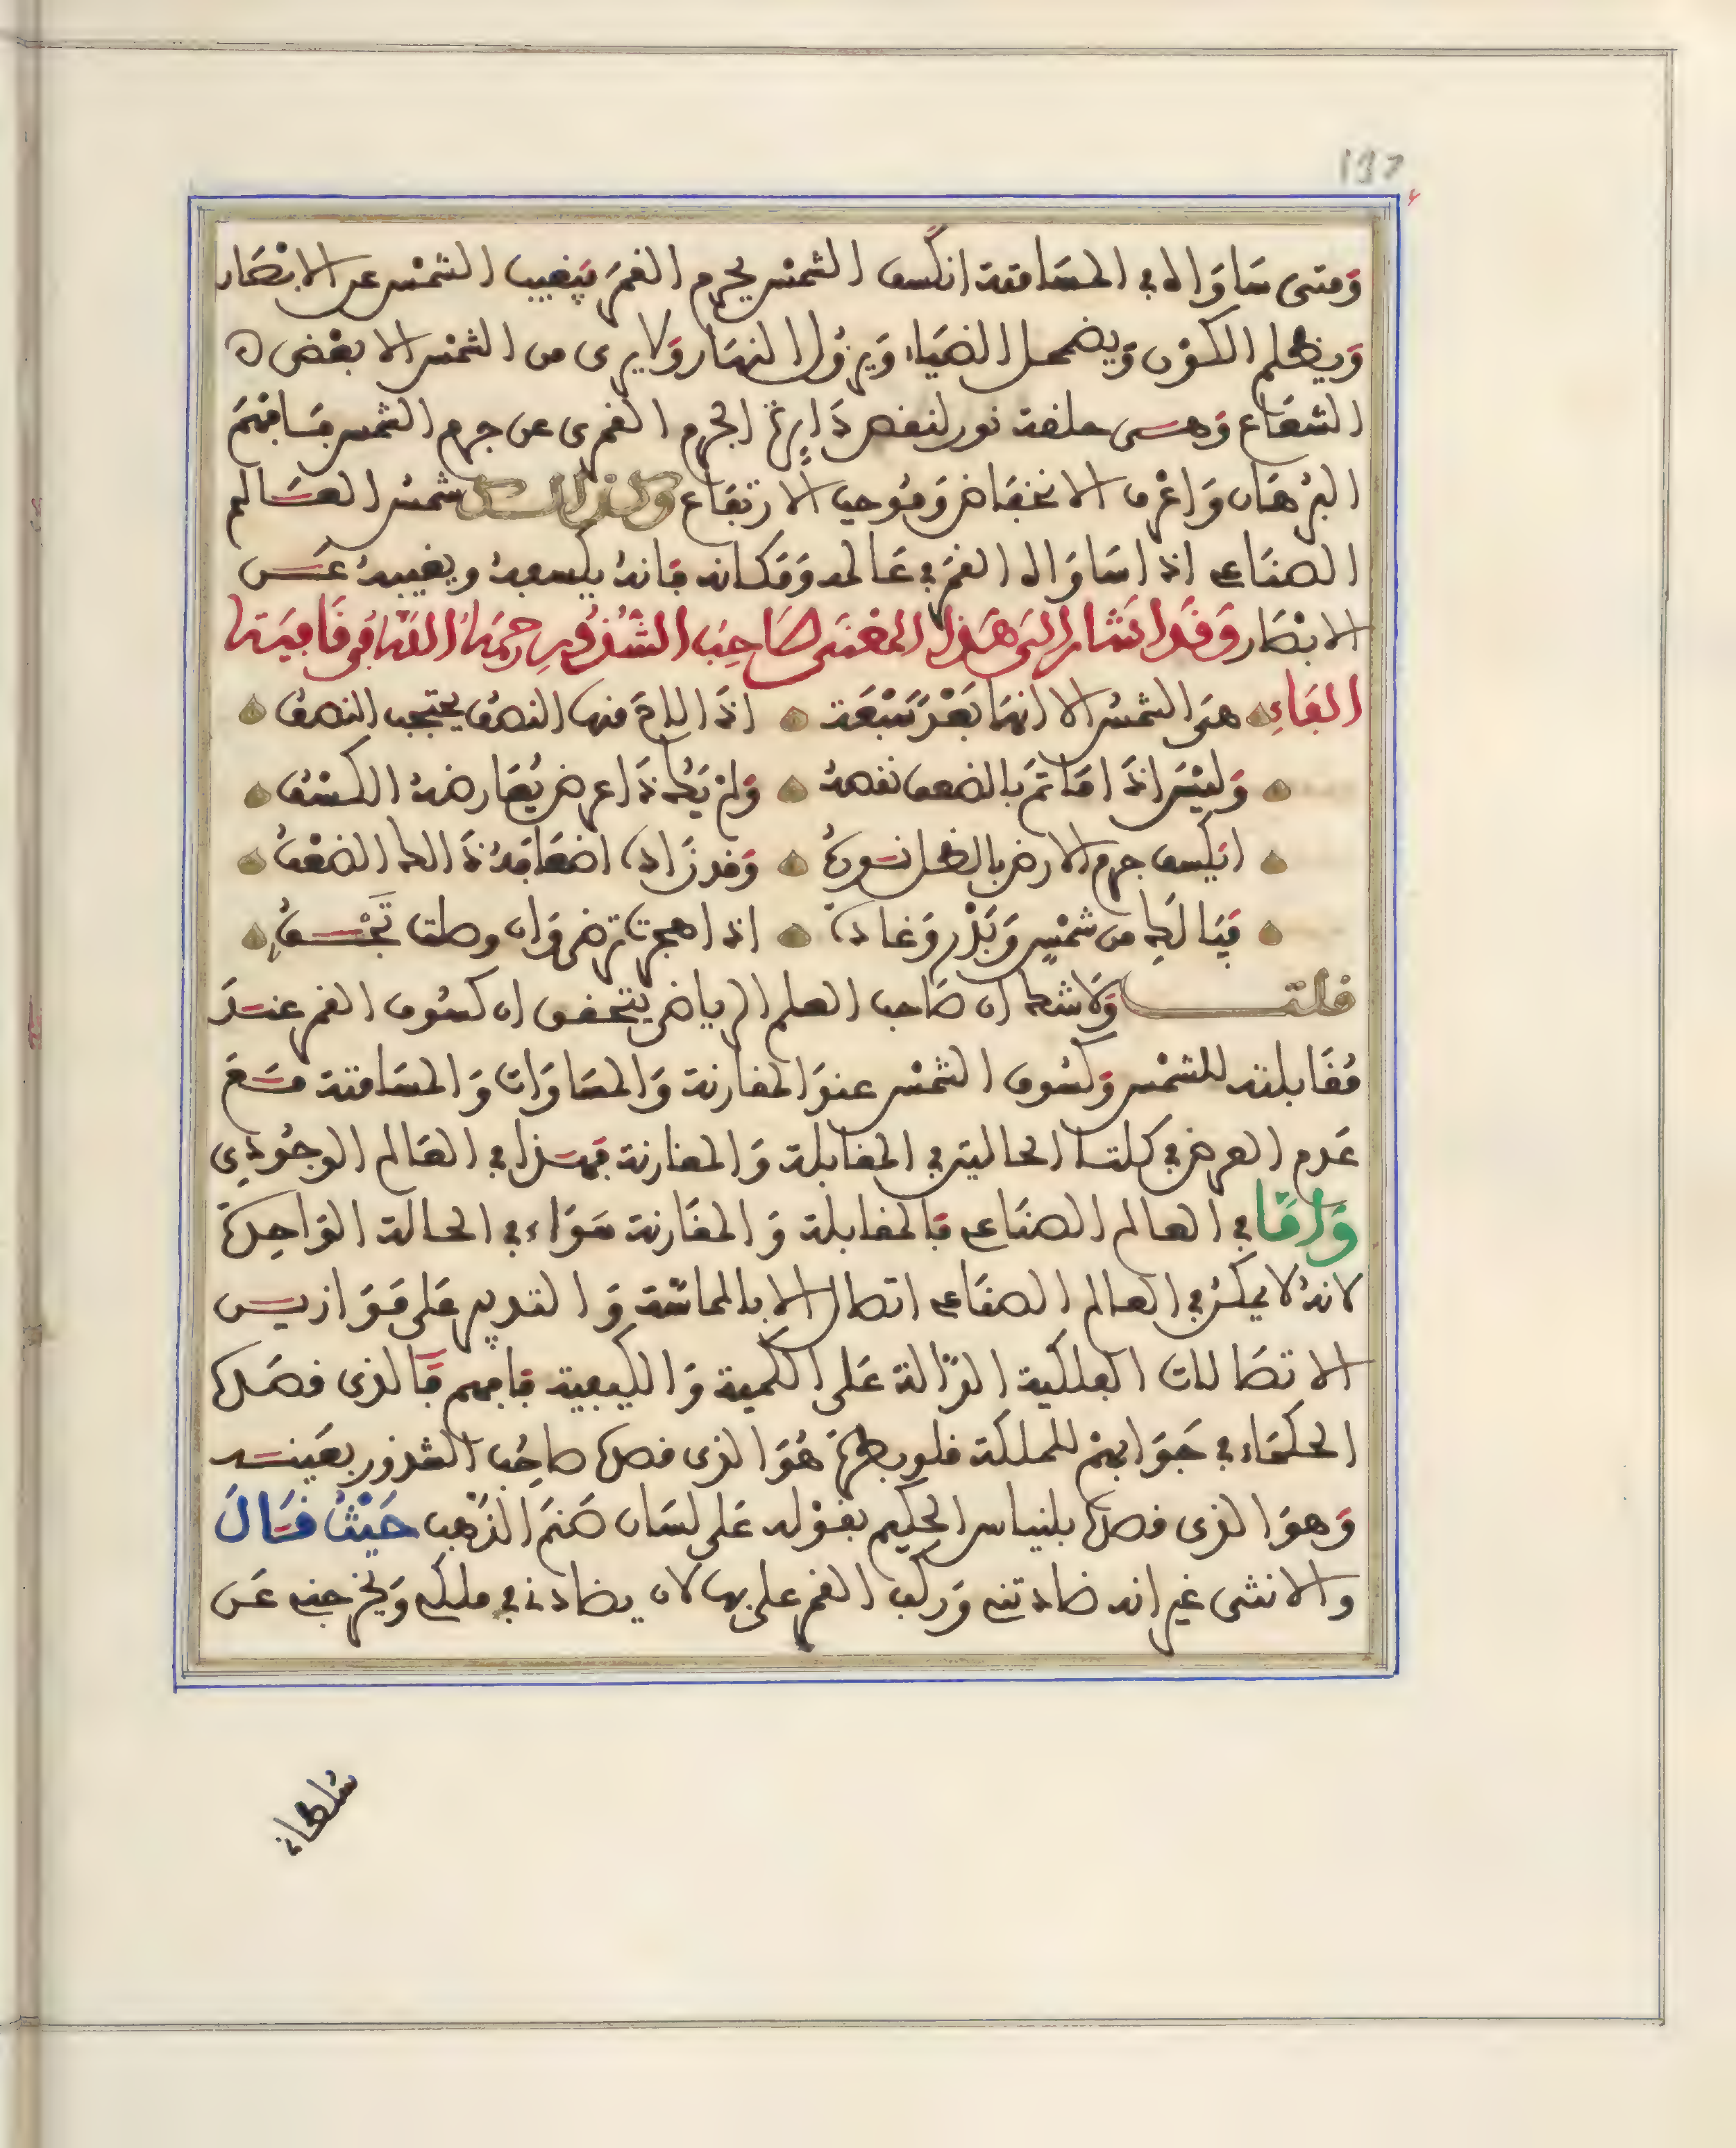 137
وَمتى سَاوَاه في المسَامتة انكسف الشمْس بجرم القمَر فيغيب الشمْس عن الابْصَار
وَيظلم الكوْن وَيضمحل الضيَاء وَيزُول النهَار وَلا يرى من الشمْس الا بعْض
الشعَاع وَهي حلقة نور لنقص دَايرة الجرم القمري عن جرم الشمس فَافهَم
البرْهَان وَاعْرف الانخفَاض وَمُوجب الارتفَاع وكذلك شمسُ العَالم
الصنَاعي اذا سَاوَاه القمَر في عَالمه وَمَكانه فانهُ يكسفهُ ويغيبهُ عَن
الابْصَار وَقَد اشَار الى هَذا المعْنَى صَاحِبُ الشُذُورِ رحمَهُ اللهُ في قَافيَة
الفَاءِ هيَ الشمسُ الا انهَا بَعْدَ سَبْعَة اذَا لاحَ منها النصفُ يحتجب النصفُ
وَليْسَ اذَا مَا تَمَّ بالضعف نقصهُ وَلمْ يَكُ ذَا عرض يُعَارضهُ الكسْفُ
ايكسف جرم الارض بالظل نُورهُ وَقد زَاد في اضعَافهُ ذَالك الضعْفُ
فيَا لَكِ من شمْسٍ وَبَدْر وَغادة اذا هجرت ترضى وَان وصلت تَجْفُ
قلت وَلاشك ان صَاحب العلم الرياضي يتحقق ان كسُوف القمر عندَ
مُقَابلته للشمْس وَكسُوف الشمْس عندَ المقارنة وَالمسَاوَات وَالمسَامتة مَعَ
عَدم العرض في كلتا الحالتين في المقابلة وَالمقارنة فهَذا في العَالم الوجُودِي
وَامَّا في العالم الصنَاعي فالمقابلة وَالمقَارنة سَوَاء في الحالة الوَاحِدَة
لانهُ لا يمكنُ في العالم الصنَاعي اتصال الا بالمماسَّة وَالتدبير عَلى مَوَازين
الاتصَالات الفلكية الدَّالة عَلى الكمية وَالكيفية فافهم فَالذى قصَدهُ
الحكمَاء في جَوَابهمْ للملكة قلوبطرَة هُوَ الذى قصدهُ صاحِبُ الشذور بعَينه
وَهوَ الذى قصدهُ بلنياس الحكيم بقوْله عَلى لسَان صَنَم الذَهب حَيْثُ قَالَ
والانثى غير انه ضادتنى وَركب القمر على بهالان يضادنى في ملكى وَيخرجنى عَن
سُلطاني